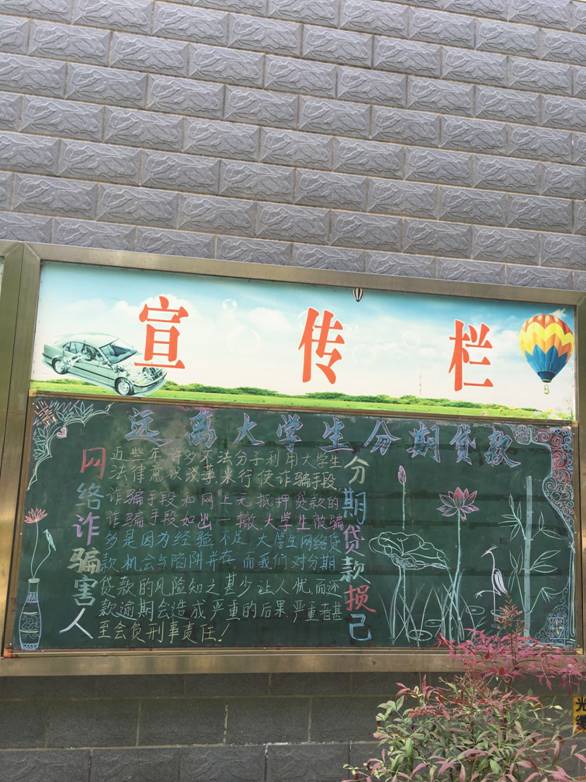 宣传栏
远离大学生分期贷款
网络诈骗害人
近些年许多不法分子利用大学生
法律意识淡薄来行使诈骗手段
诈骗手段如网上无抵押贷款的
诈骗手段如出一辙大学生被骗
多是因为经验不足,大学生网络贷
款,机会与陷阱并存,而我们对分期
贷款的风险知之甚少让人忧,而还
款逾期会造成严重的后果,严重者甚
至会负刑事责任!
分期贷款损己
光